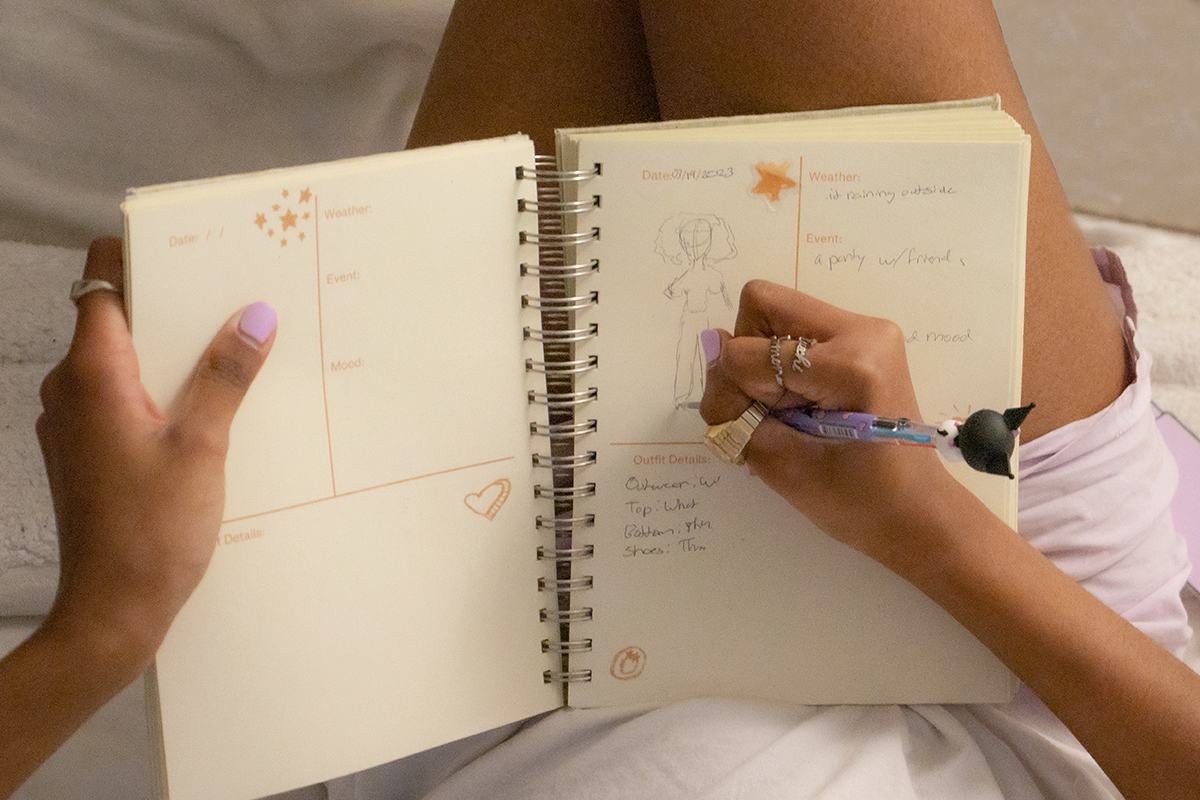 Date: / /
Weather:
Event:
Mood:
Details:
Date: 03/14/2023
Weather:
it raining outside
Event:
a party w/friends
mood
Outfit Details:
Outerwear: w/
Top: What
Bottom:
Shoes: Thr